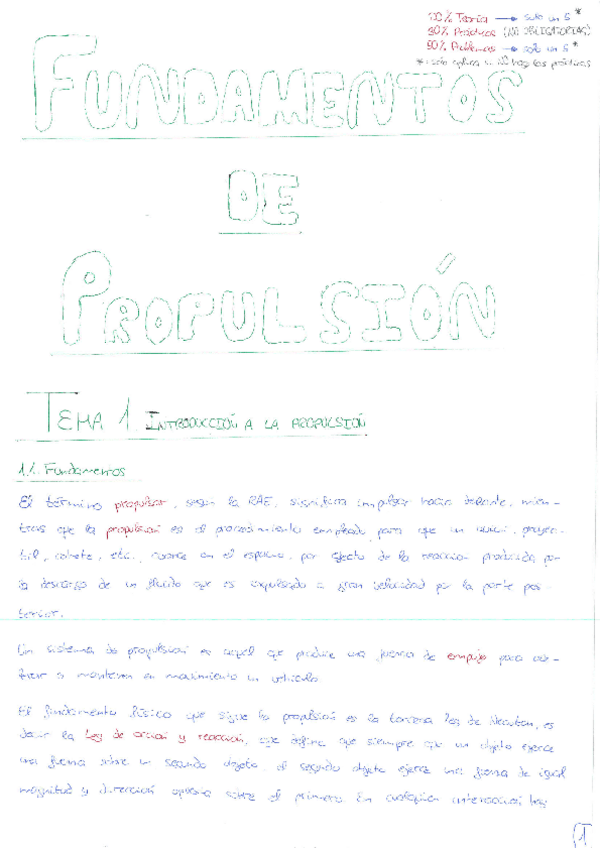 Teoría → solo un 5 *
Prácticas (NO OBLIGATORIAS)
50% Problemas → solo un 5 *
* : solo aplica si NO haces las prácticas
FUNDAMENTOS
DE
PROPULSIÓN
TEMA 1 INTRODUCCIÓN A LA PROPULSIÓN
1.1. Fundamentos
El término propulsar, según la RAE, significa impulsar hacia delante, mien-
tras que la propulsión es el procedimiento empleado para que un avión, proyec-
til, cohete, etc., avance en el espacio, por efecto de la reacción producida por
la descarga de un fluido que es expulsado a gran velocidad por la parte pos-
terior.
Un sistema de propulsión es aquel que produce una fuerza de empuje para
o mantener en movimiento un vehículo.
El fundamento físico que sigue la propulsión es la tercera ley de Newton, es
decir la Ley de acción y reacción, que define que siempre que un objeto ejerce
una fuerza sobre un segundo objeto, el segundo objeto ejerce una fuerza de igual
magnitud y dirección opuesta sobre el primero. En cualquier interacción hay
1